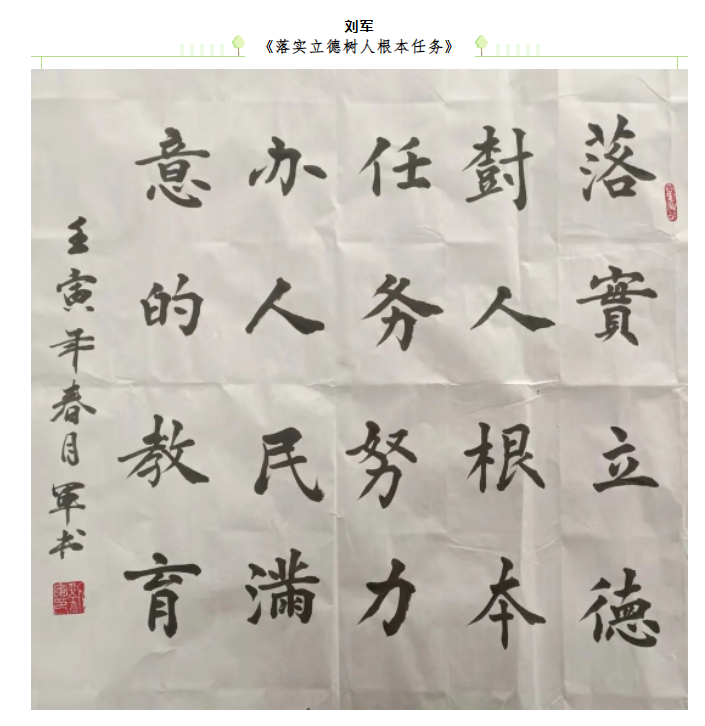 刘军
《落实立德树人根本任务》
落實立德
樹人根本
任务努力
办人民满
意的教育
壬寅年春月军书